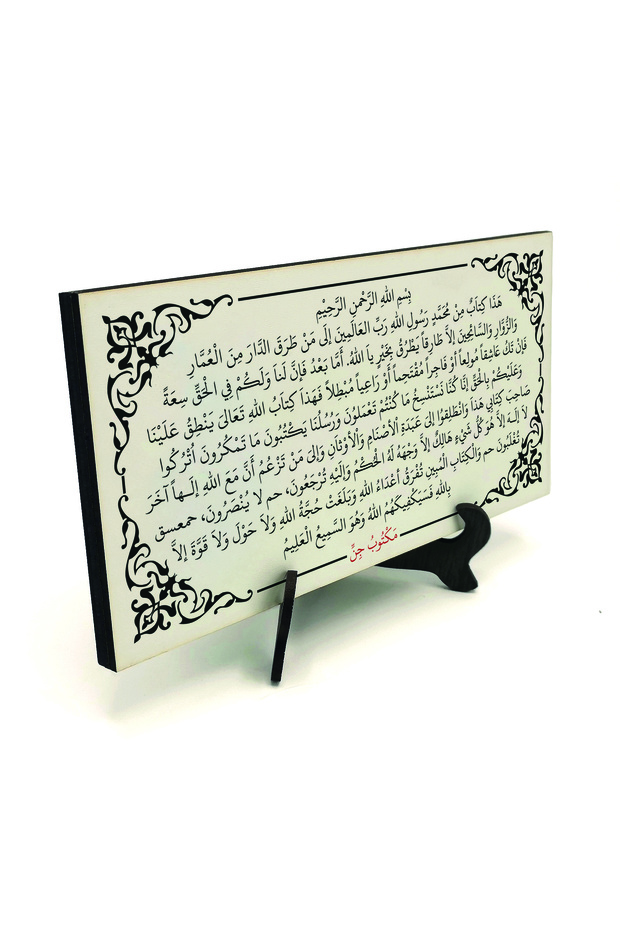 بِسْمِ اللهِ الرَّحْمنِ الرَّحِيْمِ
هَذَا كِتَابٌ مِنْ مُحَمَّدٍ رَسُولِ اللهِ رَبِّ العَالَمِينَ إِلَى مَنْ طَرَقَ الدَّارَ مِنَ الْعُمَّارِ
وَالزُّوَّارِ وَالسَّائِحِينَ اِلاَّ طَارِقاً يَطْرُقُ بِخَيْرٍ ياَ اللهُ. أَمَّا بَعْدُ فَإِنَّ لَناَ وَلَكُمْ فِي الْحَقِّ سِعَةً
فَإِنْ تَكُ عَاشِقاً مُولِعاً أَوْ فَاجِراً مُقْتَحِماً أَوْ رَاعِياً مُبْطِلاً فَهَذَا كِتَابُ اللهِ تَعَالَى يَنْطِقُ عَلَيْنَا
وَعَلَيْكُمْ بِالْحَقِّ إِنَّا كُنَّا نَسْتَنْسِخُ مَا كُنْتُمْ تَعْمَلُونَ وَرُسُلُنَا يَكْتُبُونَ مَا تَمْكُرُونَ اُتْرُكُوا
صَاحِبَ كِتَابِي هَذَا وَانْطَلِقُوا اِلَى عَبَدَةِ الْأَصْنَامِ وَالْأَوْثَانِ وَاِلَى مَنْ تَزْعُمُ أَنَّ مَعَ اللهِ اِلَـهاً آخَرَ
لاَ اِلَـهَ اِلاَّ هُوَ كُلُّ شَيْءٍ هَالِكٌ اِلاَّ وَجْهَهُ لَهُ الْحُكْمُ وَاِلَيْهِ تُرْجَعُونَ، حم لا يُنْصَرُونَ، حمعسق
تُغْلَبُونَ حم وَالْكِتَابِ الْمُبِينِ تُفَرِّقُ أَعْدَاءَ اللهِ وَبَلَغَتْ حُجَّةُ اللهِ وَلاَ حَوْلَ وَلاَ قُوَّةَ اِلاَّ
بِاللهِ فَسَيَكْفِيكَهُمُ اللهُ وَهُوَ السَّمِيعُ الْعَلِيمُ
مَكْتُوبُ جِنٍّ